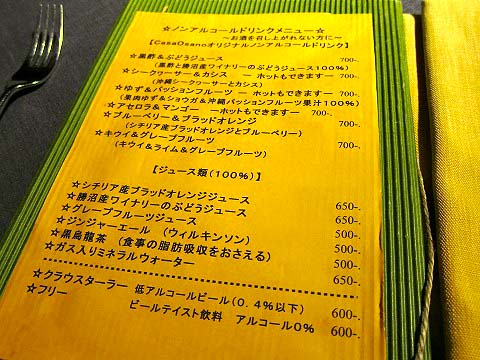 ☆ノンアルコールドリンクメニュー☆
～お酒を召し上がれない方に～
【CasaOsanoオリジナルノンアルコールドリンク】
☆黒酢＆ぶどうジュース 700-.
(黒酢と勝沼産ワイナリーのぶどうジュース100%)
☆シークヮーサー＆カシス － ホットもできます－ 700-.
(沖縄シークヮーサーとカシス)
☆ゆず＆パッションフルーツ － ホットもできます－ 700-.
(果肉ゆず＆ショウガ＆沖縄パッションフルーツ果汁100%)
☆アセロラ＆マンゴー －ホットもできます－ 700-.
☆ブルーベリー＆ブラッドオレンジ 700-.
(シチリア産ブラッドオレンジとブルーベリー)
☆キウイ＆グレープフルーツ 700-.
(キウイ＆ライム＆グレープフルーツ)
【ジュース類(100%)】
☆シチリア産ブラッドオレンジジュース 650-.
☆勝沼産ワイナリーのぶどうジュース 650-.
☆グレープフルーツジュース 500-.
☆ジンジャーエール (ウィルキンソン) 500-.
☆黒烏龍茶 (食事の脂肪吸収をおさえる) 500-.
☆ガス入りミネラルウォーター 650-.
☆クラウスターラー 低アルコールビール(0.4%以下) 600-.
☆フリー ビールテイスト飲料 アルコール0% 600-.